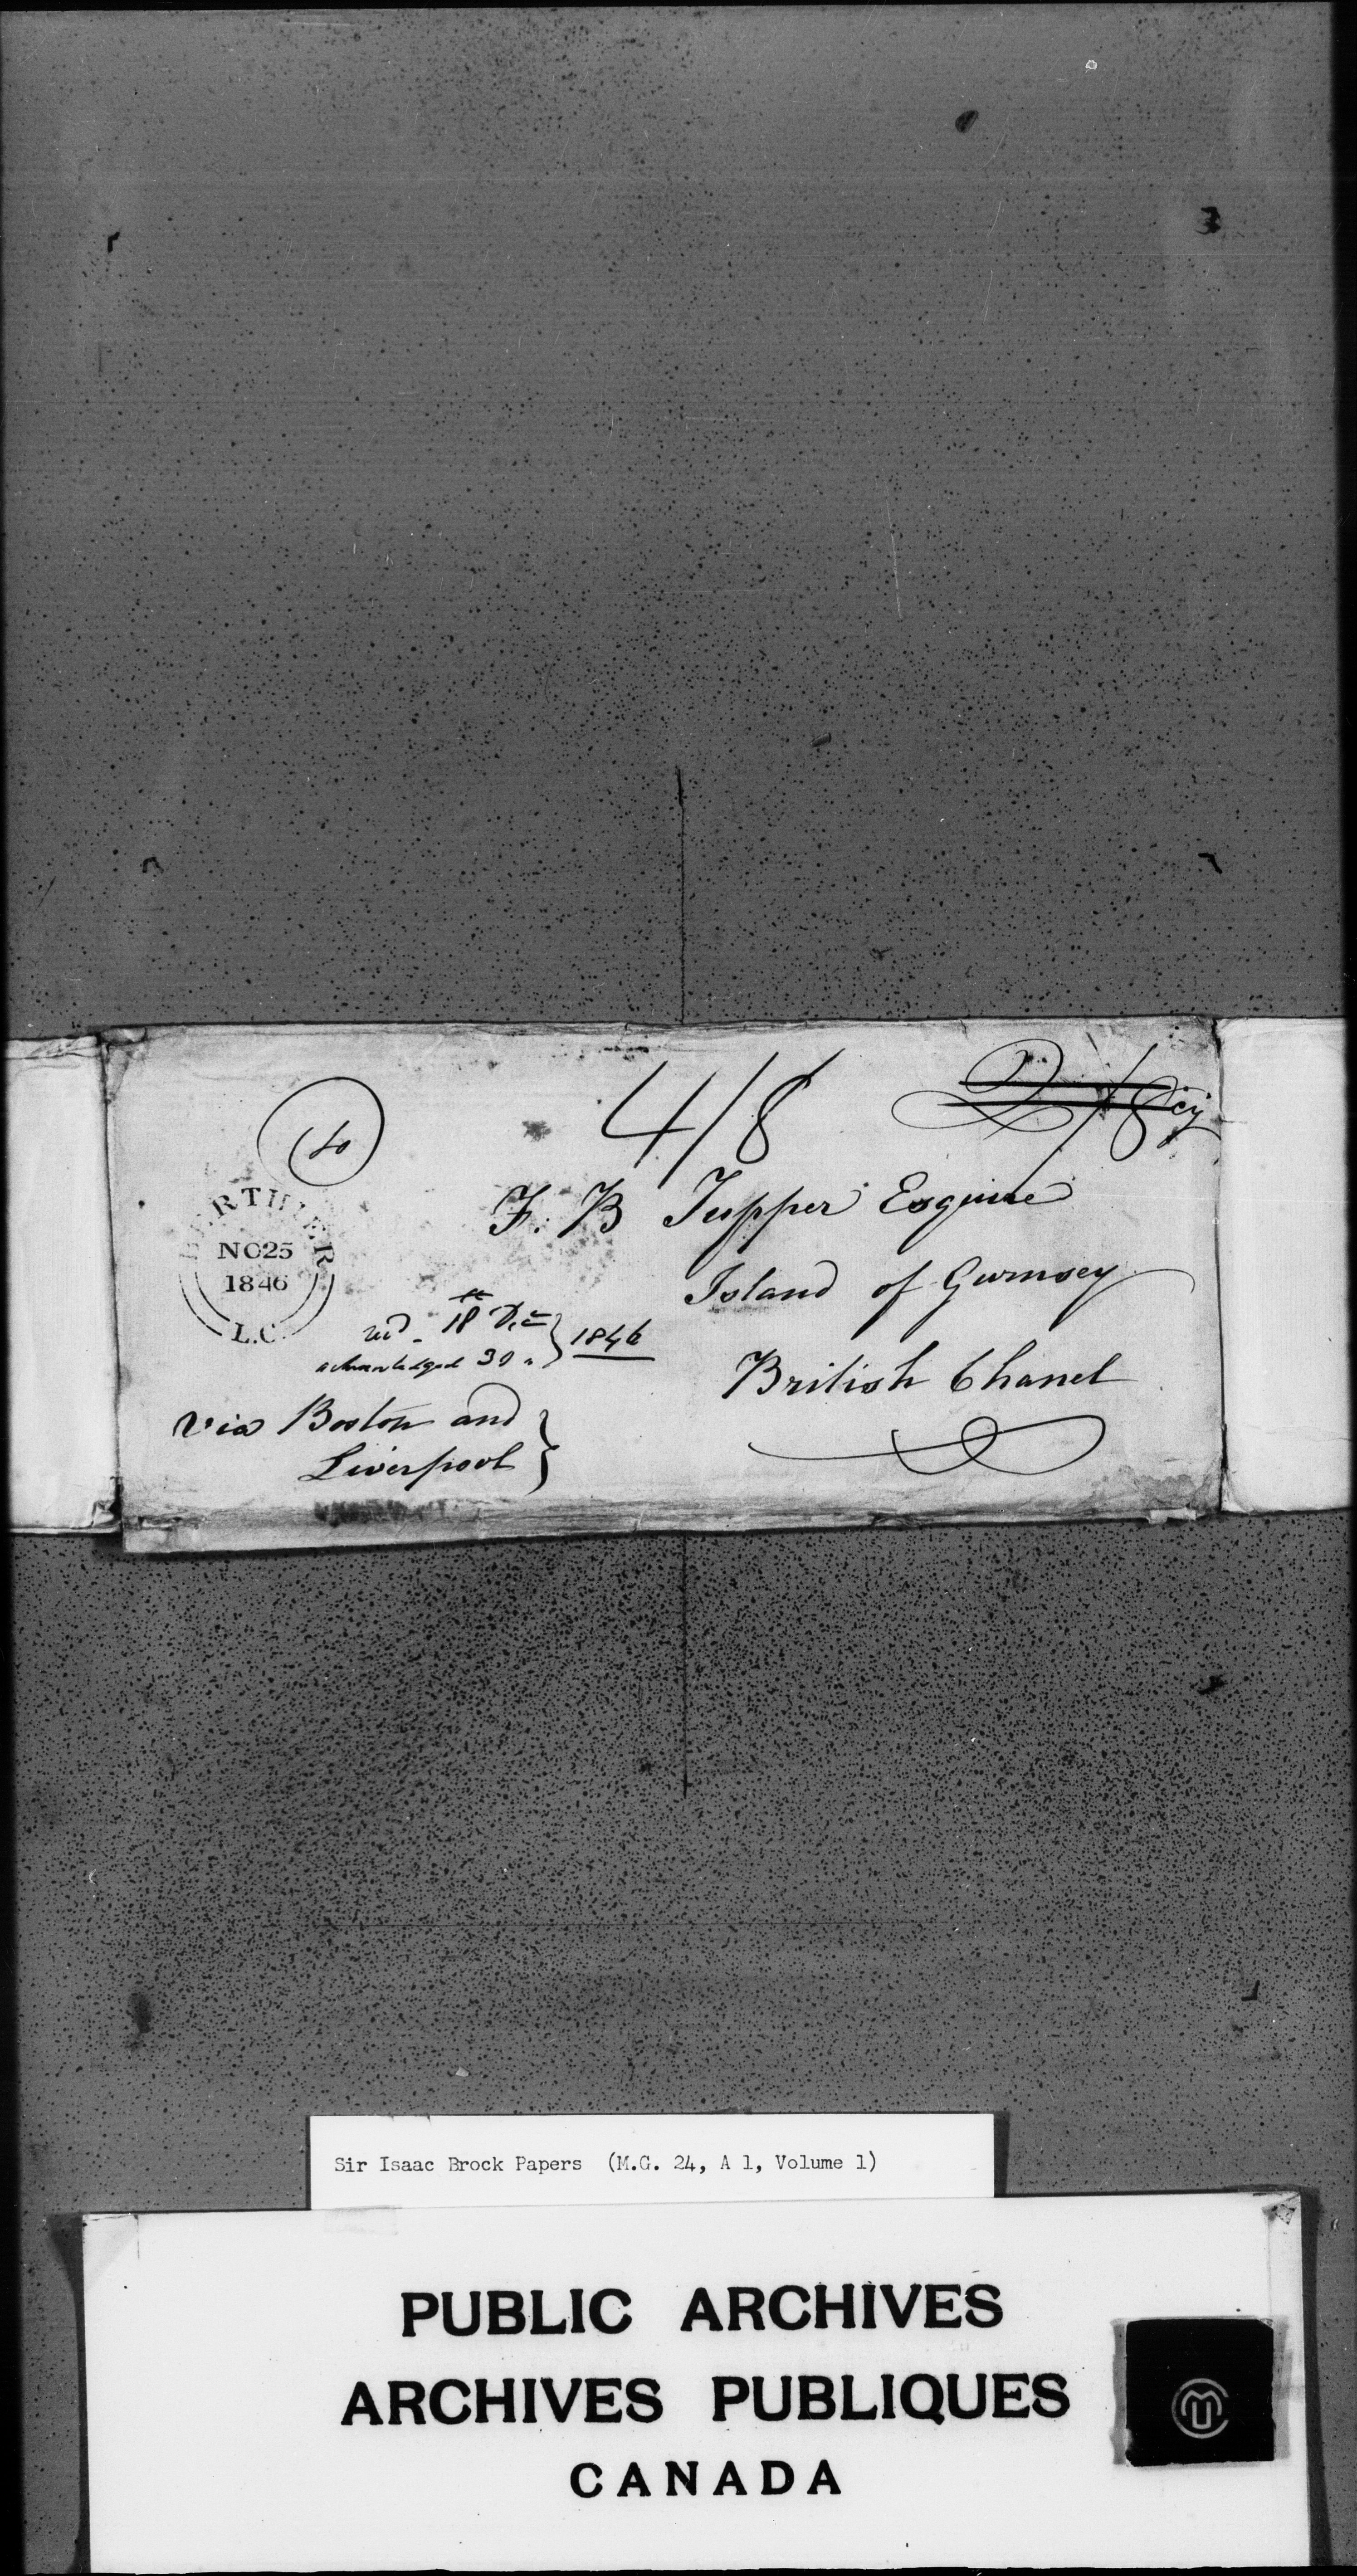 4/8
F. B Tupper Esquire
Island of Guernsey
British Chanel
BERTHIER
NO25
1846
L.C.
recd. 18th Dec
acknowledged 30 "
1846
via Boston and
Liverpool
Sir Isaac Brock Papers (M.G. 24, A 1, Volume 1)
PUBLIC ARCHIVES
ARCHIVES PUBLIQUES
CANADA